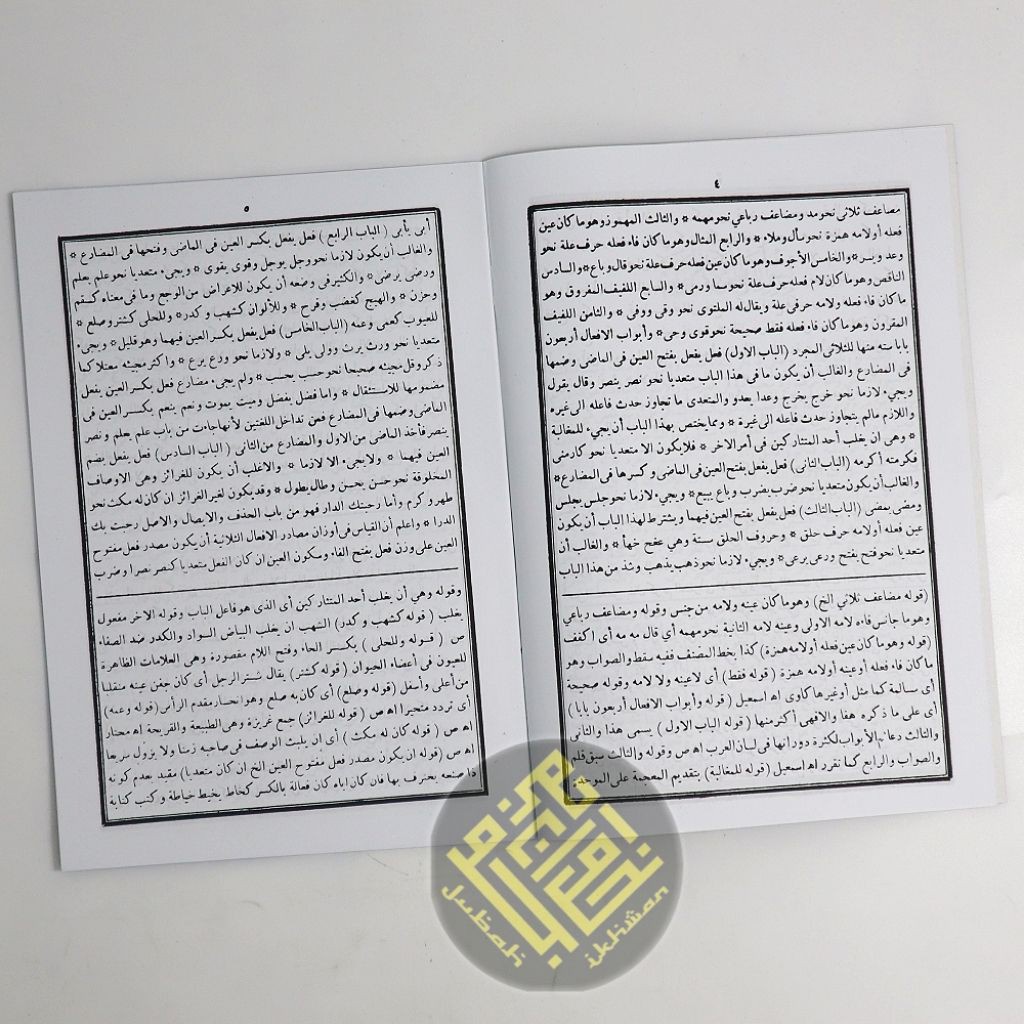 ٤
مضاعف ثلاثى نحو مد ومضاعف رباعي نحو مهمه * والثالث المهموز وهو ما كان عين
فعله أو لامه همزة نحو سأل وملاء * والرابع المثال وهو ما كان فاء فعله حرف علة نحو
وعد ويسر * والخامس الأجوف وهو ما كان عين فعله حرف علة نحو قال وباع * والسادس
الناقص وهو ما كان لام فعله حرف علة نحو سما ورمى * والسابع اللفيف المفروق وهو
ما كان فاء فعله ولامه حرفى علة ويقال له الملتوى نحو وقى ووفى * والثامن اللفيف
المقرون وهو ما كان فاء فعله فقط صحيحة نحو قوى وحى * وأبواب الافعال أربعون
بابا ستة منها للثلاثى المجرد (الباب الاول) فعل يفعل بفتح العين فى الماضى وضمها
فى المضارع والغالب أن يكون ما فى هذا الباب متعديا نحو نصر ينصر وقال يقول
ويجىء لازما نحو خرج يخرج وعدا يعدو والمتعدى ما تجاوز حدث فاعله الى غيره
واللازم مالم يتجاوز حدث فاعله الى غيره * ومما يختص بهذا الباب أن يجىء للمغالبة
* وهى ان يغلب أحد المتشاركين فى أمر الاخر * فلا يكون الا متعديا نحو كارمنى
فكرمته أكرمه (الباب الثانى) فعل يفعل بفتح العين فى الماضى وكسرها فى المضارع *
والغالب أن يكون متعديا نحو ضرب يضرب وباع يبيع * ويجىء لازما نحو جلس يجلس
ومضى يمضى (الباب الثالث) فعل يفعل بفتح العين فيهما ويشترط لهذا الباب أن يكون
عين فعله أو لامه حرف حلق * وحروف الحلق ستة وهى عفح خهأ * والغالب أن
متعديا نحو فتح يفتح ورعى يرعى * ويجىء لازما نحو ذهب يذهب وشذ من هذا الباب
(قوله مضاعف ثلاثي الخ) وهو ما كان عينه ولامه من جنس وقوله ومضاعف رباعي
وهو ما جانس فاءه لامه الاولى وعينه لامه الثانية نحو مهمه أي قال مه مه أى اكفف
(قوله وهو ما كان عين فعله أو لامه همزة) كذا بخط المصنف ففيه سقط والصواب وهو
ما كان فاء فعله أو عينه أو لامه همزة (قوله فقط) أى لا عينه ولا لامه وقوله صحيحة
أى سالمة كما مثل أو غيرها كاوى اه اسمعيل (قوله وأبواب الافعال أربعون بابا)
أى على ما ذكره هنا والافهى أكثر منها (قوله الباب الاول) يسمى هذا والثانى
والثالث دعائم الأبواب لكثرة دورانها فى لسان العرب اه ص وقوله والثالث سبق قلم
والصواب والرابع كما تقرر اه اسمعيل (قوله للمغالبة) بتقديم المعجمة على الموحدة
٥
أبى يأبى (الباب الرابع) فعل يفعل بكسر العين فى الماضى وفتحها فى المضارع *
والغالب أن يكون لازما نحو وجل يوجل وقوى يقوى * ويجىء متعديا نحو علم يعلم
ورضى يرضى * والكثير فى وضعه أن يكون للاعراض من الوجع وما فى معناه كسقم
وحزن * والهيج كغضب وفرح * وللألوان كشهب وكدر * وللحلى كشتر وصلع *
للعيوب كعمى وعمه (الباب الخامس) فعل يفعل بكسر العين فيهما وهو قليل * ويجىء
متعديا نحو ورث يرث وولى يلى * ولازما نحو ورع يرع * واكثر مجيئه معتلا كما
ذكر وقل مجيئه صحيحا نحو حسب يحسب * ولم يجىء مضارع فعل بكسر العين يفعل
مضمومها للاستثقال * واما فضل يفضل وميت يموت ونعم ينعم بكسر العين فى
الماضى وضمها فى المضارع فمن تداخل اللغتين لأنها جاءت من باب علم يعلم ونصر
ينصر فأخذ الماضى من الاول والمضارع من الثانى (الباب السادس) فعل يفعل بضم
العين فيهما * ولا يجىء الا لازما * والاغلب أن يكون للغرائز وهى الاوصاف
المخلوقة نحو حسن يحسن وطال يطول * وقد يكون لغير الغرائز ان كان له مكث نحو
طهر وكرم وأما رحبتك الدار فهو من باب الحذف والايصال والاصل رحبت بك
الدار * واعلم أن القياس فى أوزان مصادر الافعال الثلاثية أن يكون مصدر فعل مفتوح
العين على وزن فعل بفتح الفاء وسكون العين ان كان الفعل متعديا كنصر نصرا وضرب
وقوله وهي أن يغلب أحد المتشاركين أى الذى هو فاعل الباب وقوله الاخر مفعول
يغلب (قوله كشهب وكدر) الشهب ان يغلب البياض السواد والكدر ضد الصفاء
ص (قوله وللحلى) بكسر الحاء وفتح اللام مقصورة وهى العلامات الظاهرة
للعيون فى أعضاء الحيوان (قوله كشتر) يقال شتر الرجل أى كان جفن عينه منقلبا
من أعلى وأسفل (قوله وصلع) أى كان به صلع وهو انحسار مقدم الرأس (قوله وعمه)
أى تردد متحيرا اه ص (قوله للغرائز) جمع غريزة وهى الطبيعة والقريحة اه مختار
اه ص (قوله كان له مكث) أى ان يلبث الوصف فى صاحبه زمنا ولا يزول سريعا
اه ص (قوله ان يكون مصدر فعل مفتوح العين الخ ان كان متعديا) مقيد بعدم كونه
ذا صنعة يحترف بها فان كان اياه كان فعالة بالكسر كخاط يخيط خياطة وكتب كتابة
Jubah
ikhwan